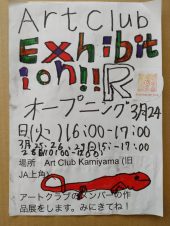 Art Club
Exhibit
ion!!R
オープニング3月24
日(火)16:00-17:00
場所 Art Club Kamiyama (旧
JA上角)
アートクラブのメンバーの作
品展をします。みにきてね!